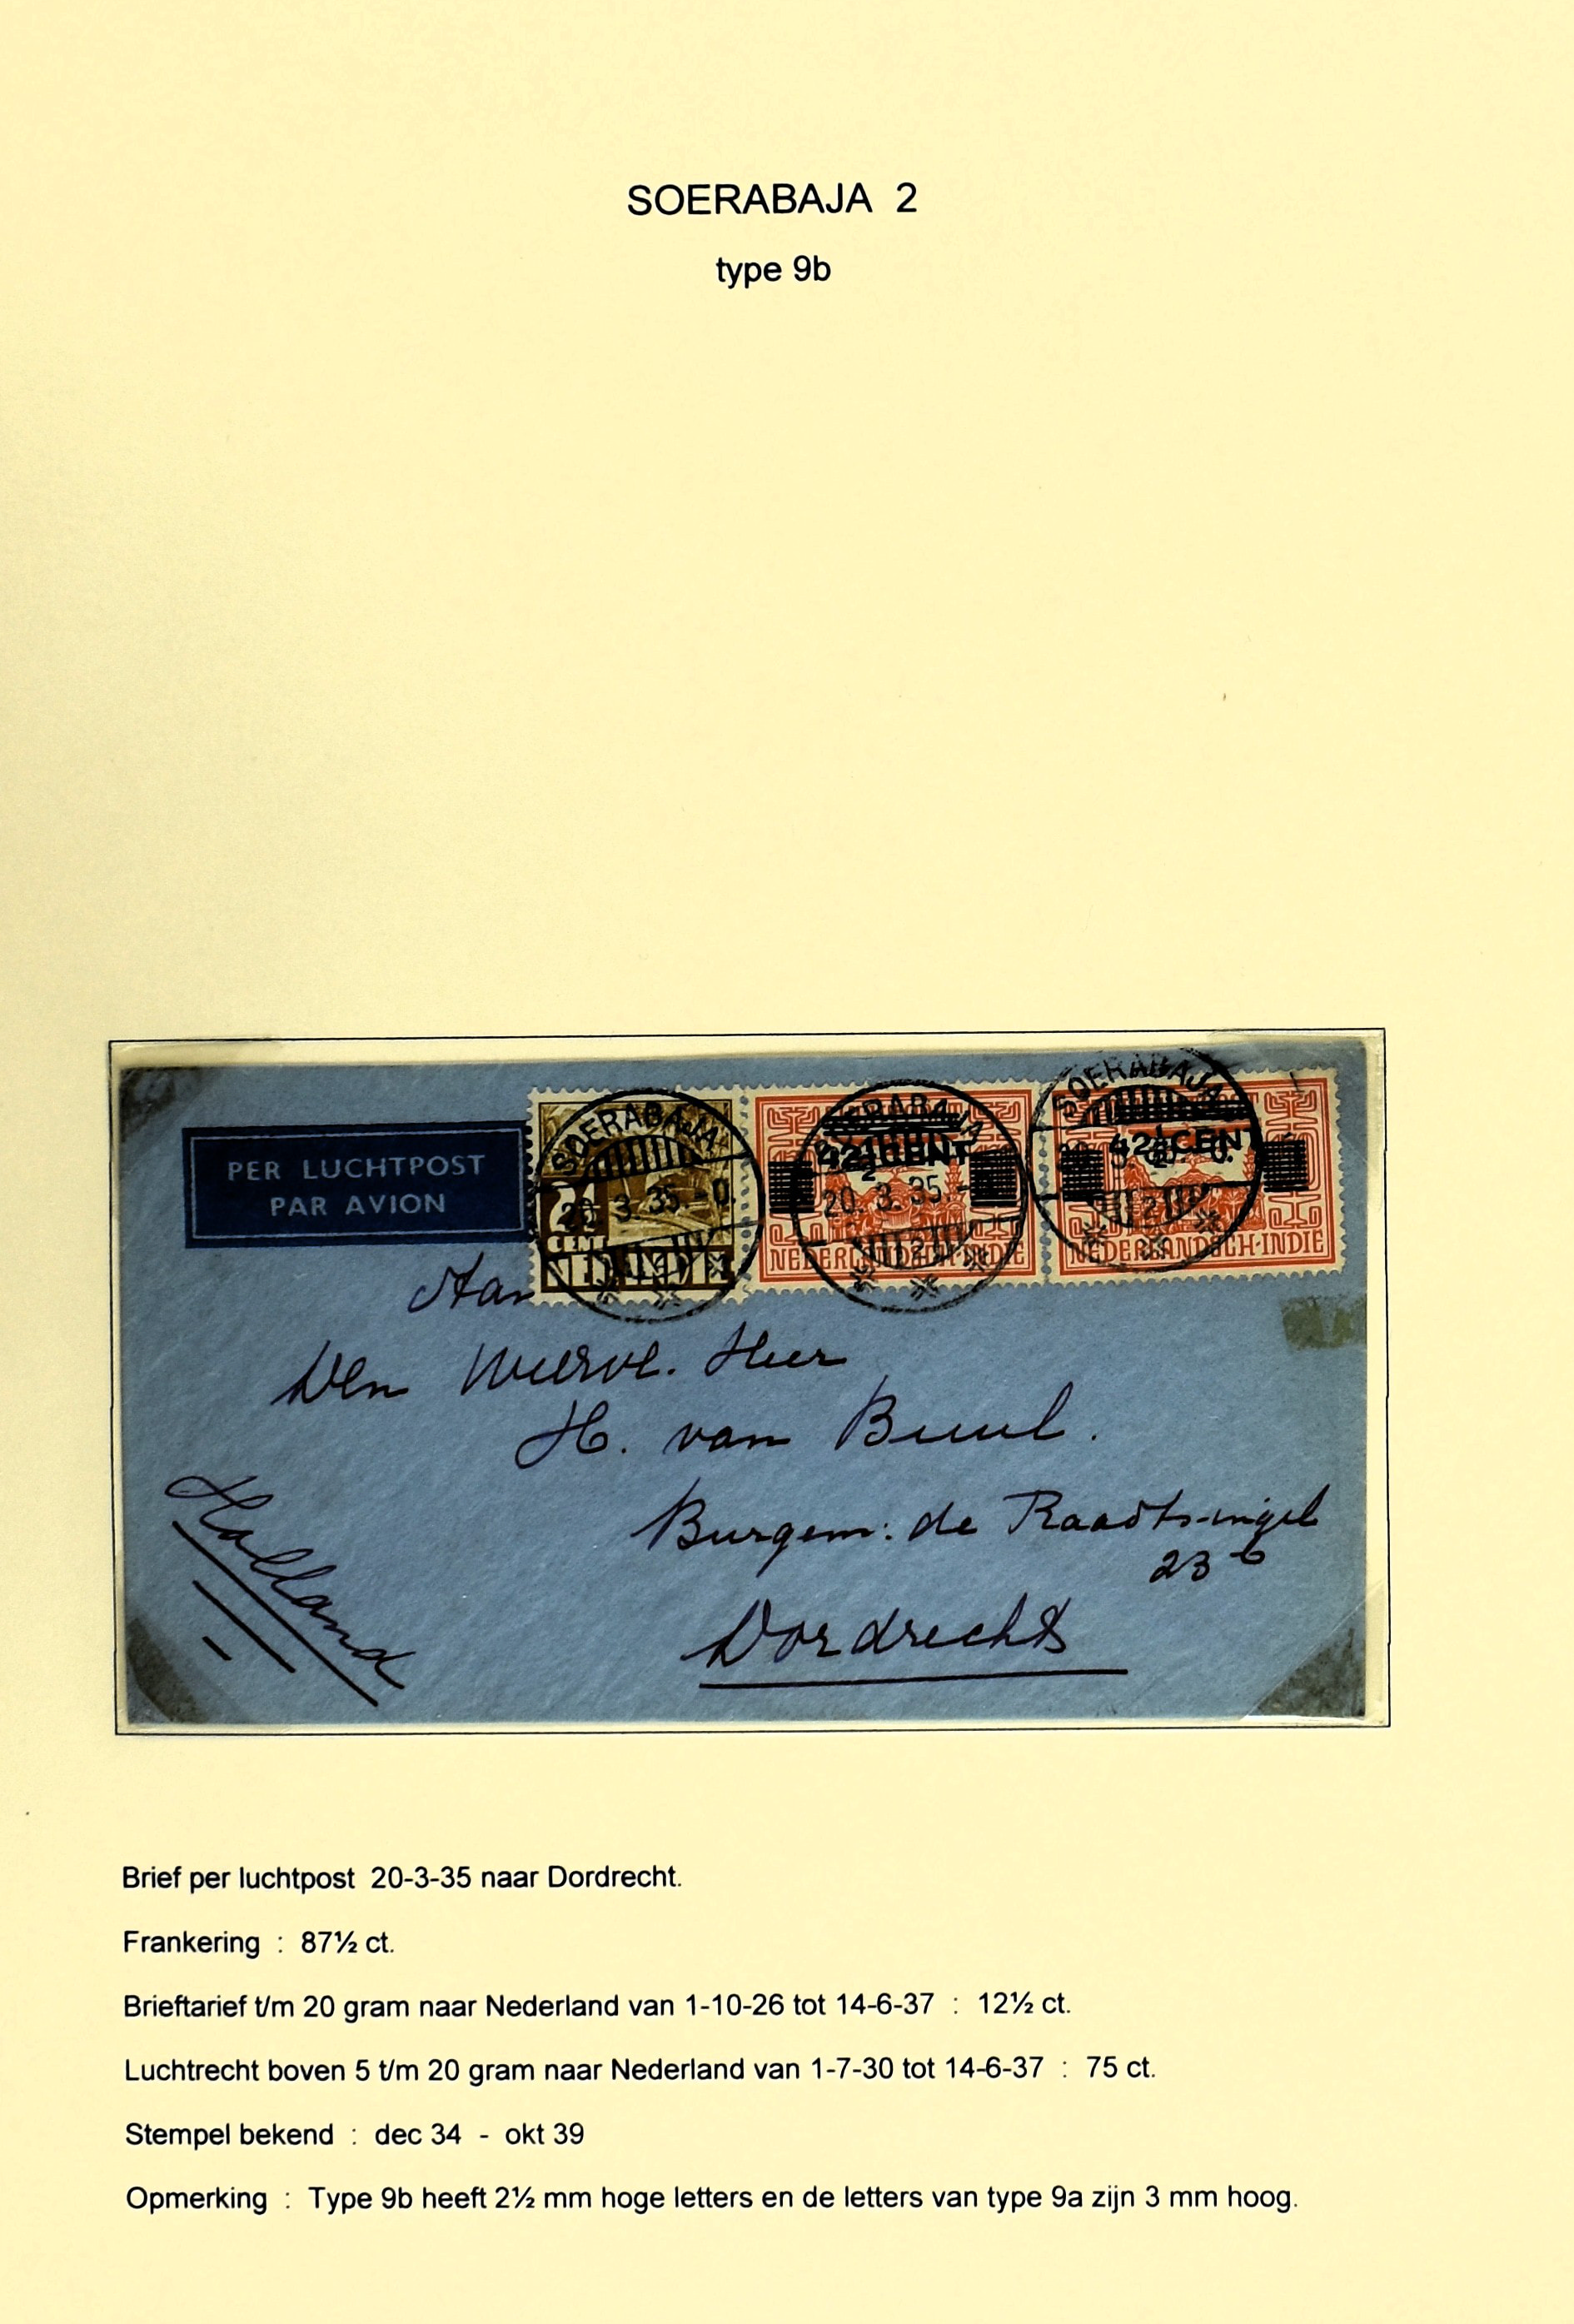 SOERABAJA 2
type 9b
PER LUCHTPOST
PAR AVION
SOERABAJA
20.3.35.-0.
CENT
NED INDIE
2
42½ CENT
20.3.35.-
NEDERLANDSCH-INDIE
2
SOERABAJA
42½ CENT
NEDERLANDSCH-INDIE
2
Aan
Den Weerde. Heer
H. van Buul.
Burgem: de Raadtsingel
23 b
Dordrecht
Holland
Brief per luchtpost 20-3-35 naar Dordrecht.
Frankering : 87½ ct.
Brieftarief t/m 20 gram naar Nederland van 1-10-26 tot 14-6-37 : 12½ ct.
Luchtrecht boven 5 t/m 20 gram naar Nederland van 1-7-30 tot 14-6-37 : 75 ct.
Stempel bekend : dec 34 - okt 39
Opmerking : Type 9b heeft 2½ mm hoge letters en de letters van type 9a zijn 3 mm hoog.